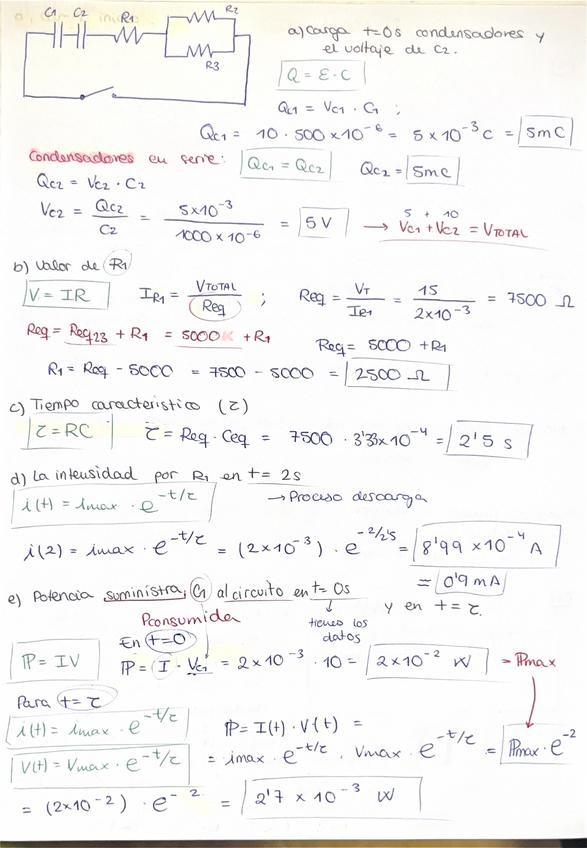 C1 C2 R1 R2
R3
a) Carga t=0s condensadores y
el voltaje de C2.
Q = E·C
Qc1 = Vc1 · C1 ;
Qc1 = 10 · 500 x10^-6 = 5 x10^-3 C = 5mC
Condensadores en serie: Qc1 = Qc2 Qc2 = 5mC
Qc2 = Vc2 · C2
Vc2 = Qc2/C2 = 5x10^-3/1000 x 10^-6 = 5 V → Vc1 + Vc2 = VTOTAL
5 + 10
b) Valor de R1
V = IR IR1 = VTOTAL/Req ; Req = VT/IR1 = 15/2x10^-3 = 7500 Ω
Req = Req23 + R1 = 5000 + R1 Req = 5000 + R1
R1 = Req - 5000 = 7500 - 5000 = 2500 Ω
c) Tiempo característico (τ)
τ = RC τ = Req · Ceq = 7500 · 3'33x10^-4 = 2'5 s
d) La intensidad por R1 en t = 2s
i(t) = imax · e^-t/τ → Proceso descarga
i(2) = imax · e^-t/τ = (2x10^-3) · e^-2/2'5 = 8'99 x10^-4 A
= 0'9 mA
e) Potencia suministra C1 al circuito en t = 0s y en t = τ.
Pconsumida tienes los
datos
En t=0
P = IV P = I · Vc1 = 2x10^-3 · 10 = 2x10^-2 W = Pmax
Para t = τ
i(t) = imax · e^-t/τ P = I(t) · V(t) =
V(t) = Vmax · e^-t/τ = imax · e^-t/τ · Vmax · e^-t/τ = Pmax · e^-2
= (2x10^-2) · e^-2 = 2'7 x 10^-3 W